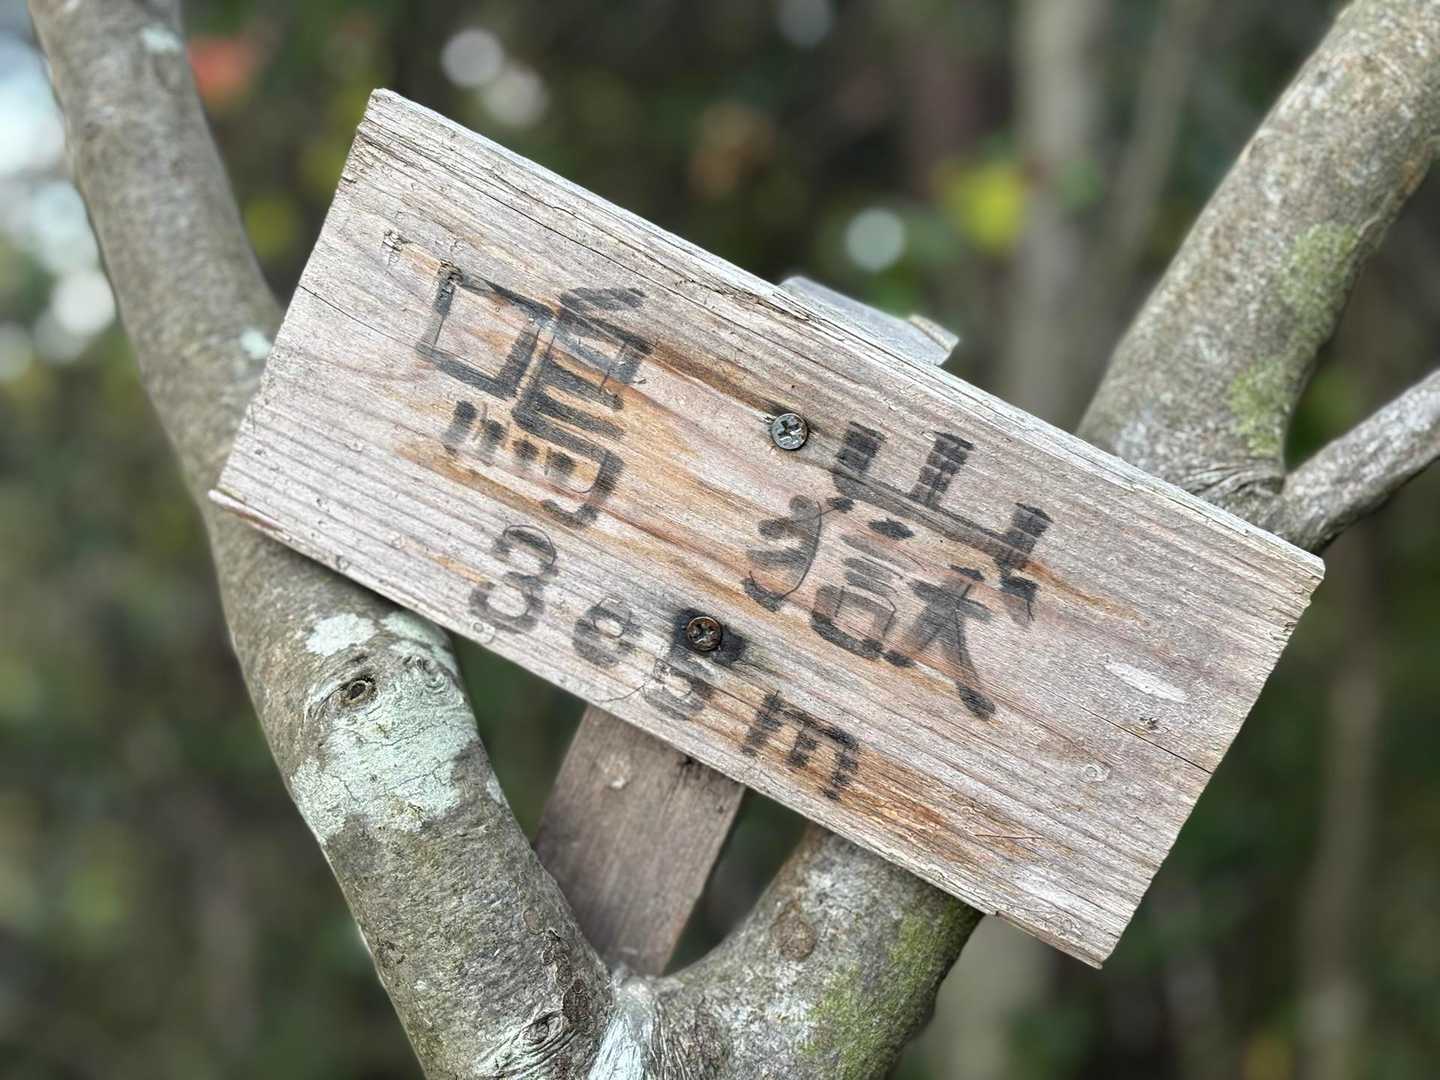 鳴嶽
305m